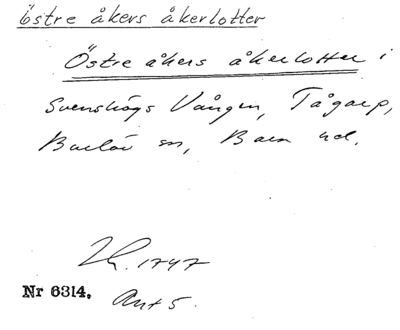 Östre åkers åkerlotter
Östre åkers åkerlotter i
Svenshögs Vången, Tågarp,
Burlöv sn, Bara hd.
Lh. 1747
Nr 6314. Akt 5.